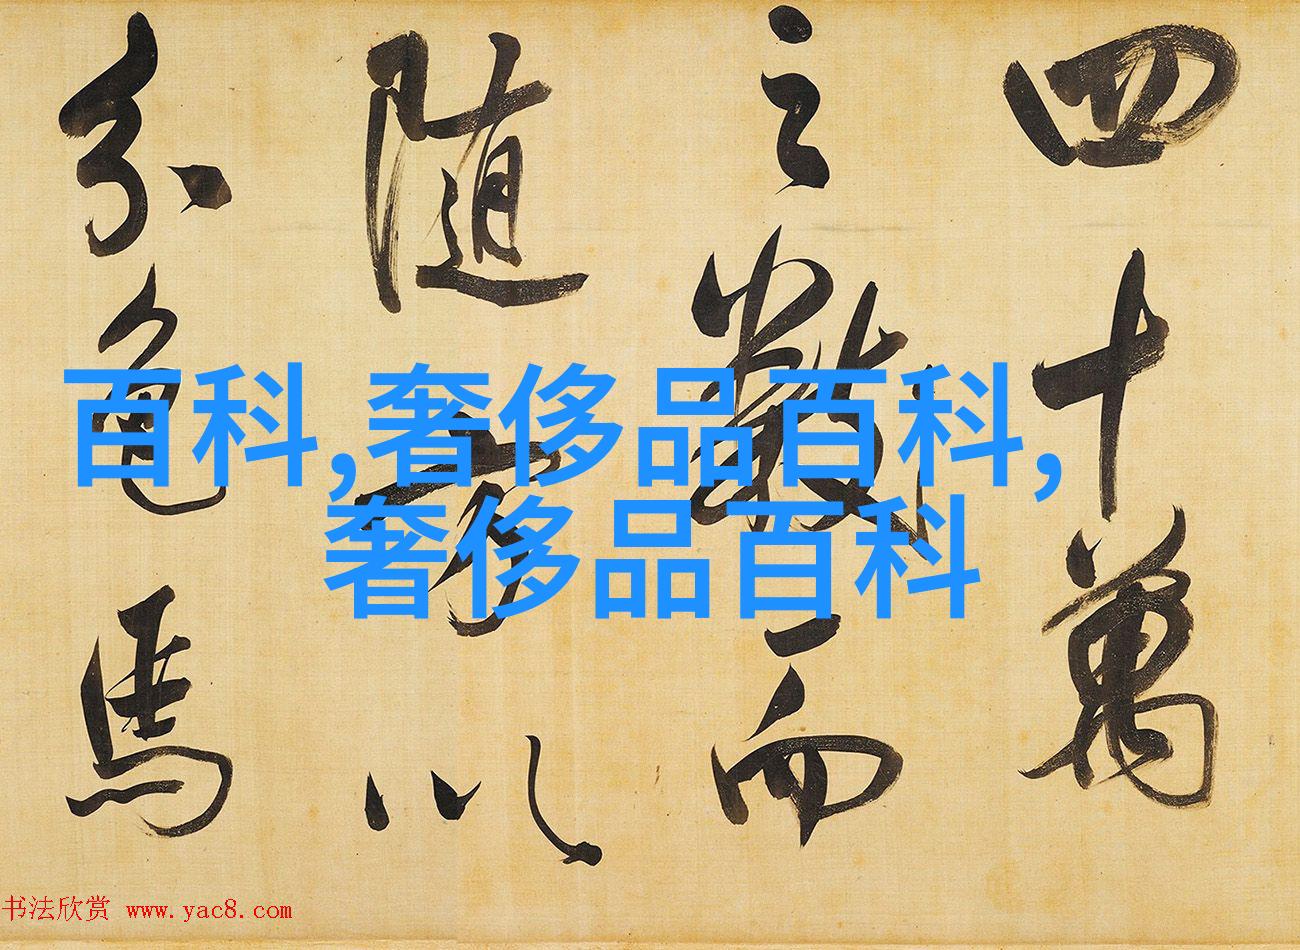 四十萬
之數而
隨方以
分色馬
百科,奢侈品百科,
奢侈品百科
书法欣赏 www.yac8.com